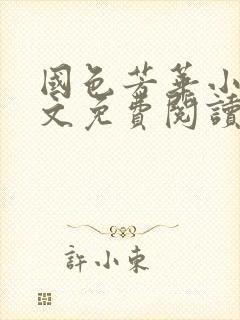 國色芳華小
文免費閱讀
許小東